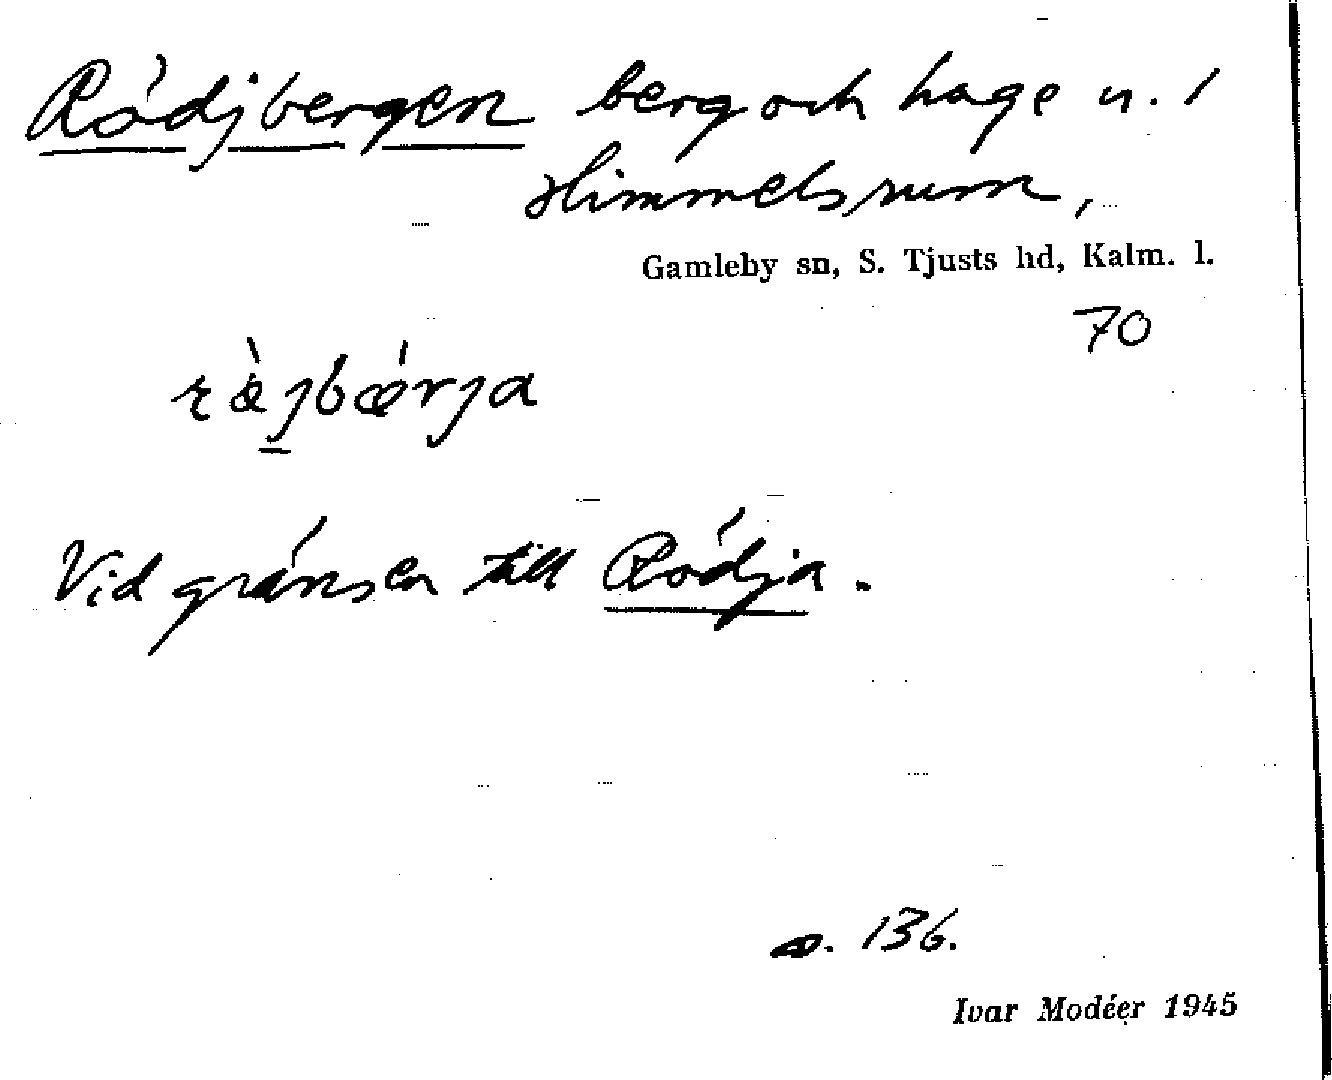 Rödjbergen berg och hage u. 1
Himmelsrum,
Gamleby sn, S. Tjusts hd, Kalm. l.
70
ræ̀jbærja
Vid gränsen till Rödja.
136.
Ivar Modéer 1945